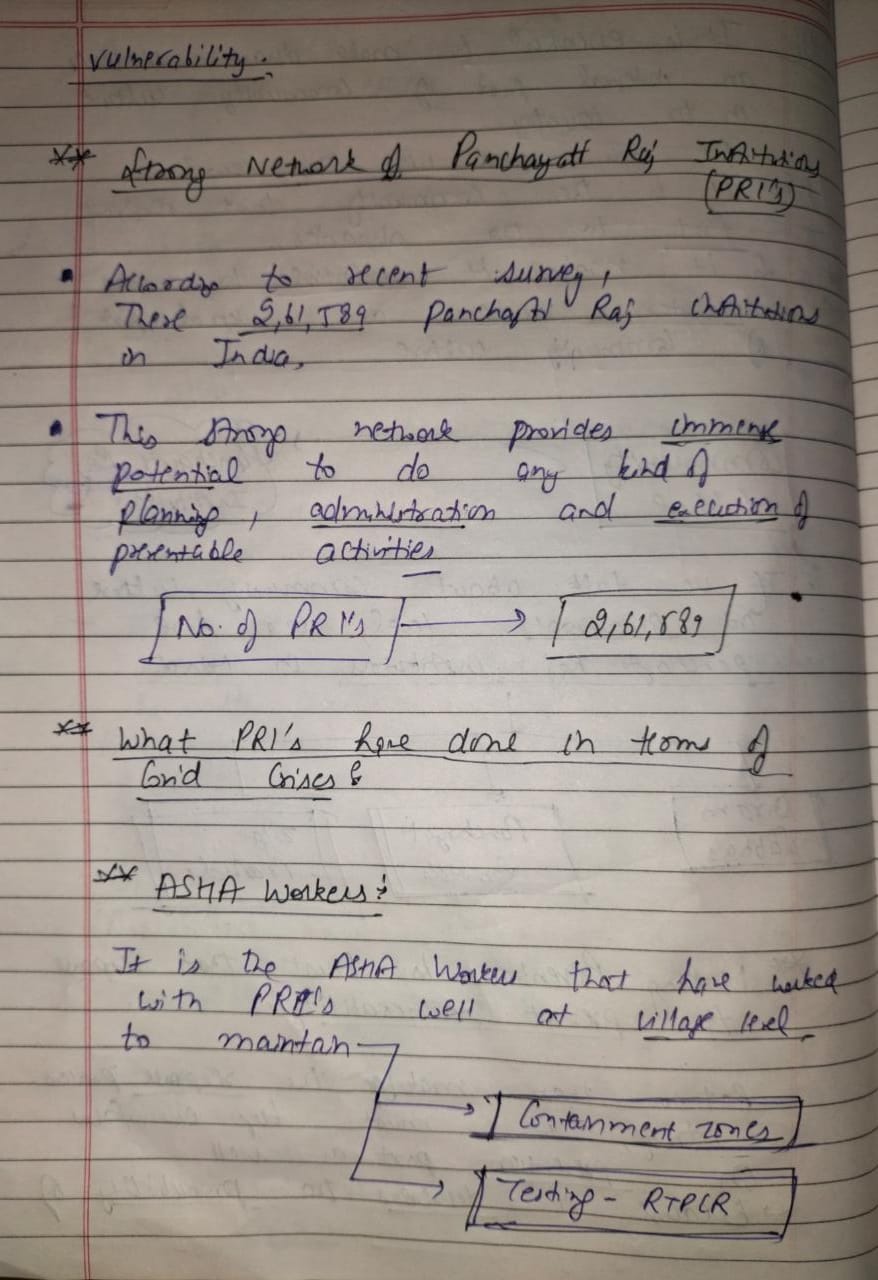 vulnerability.
** Strong Network of Panchayatt Raj Institutions
(PRI's)
• According to recent survey,
These 2,61,589 Panchayti Raj institutions
in India,
• This strong network provides immense
potential to do any kind of
planning, administration and execution of
presentable activities
No. of PRI's → 2,61,589
** What PRI's have done in terms of
Covid Crises?
** ASHA Workers:
It is the ASHA Workers that have worked
with PRI's well at village level
to maintan
→ Containment zones
→ Testing - RTPCR